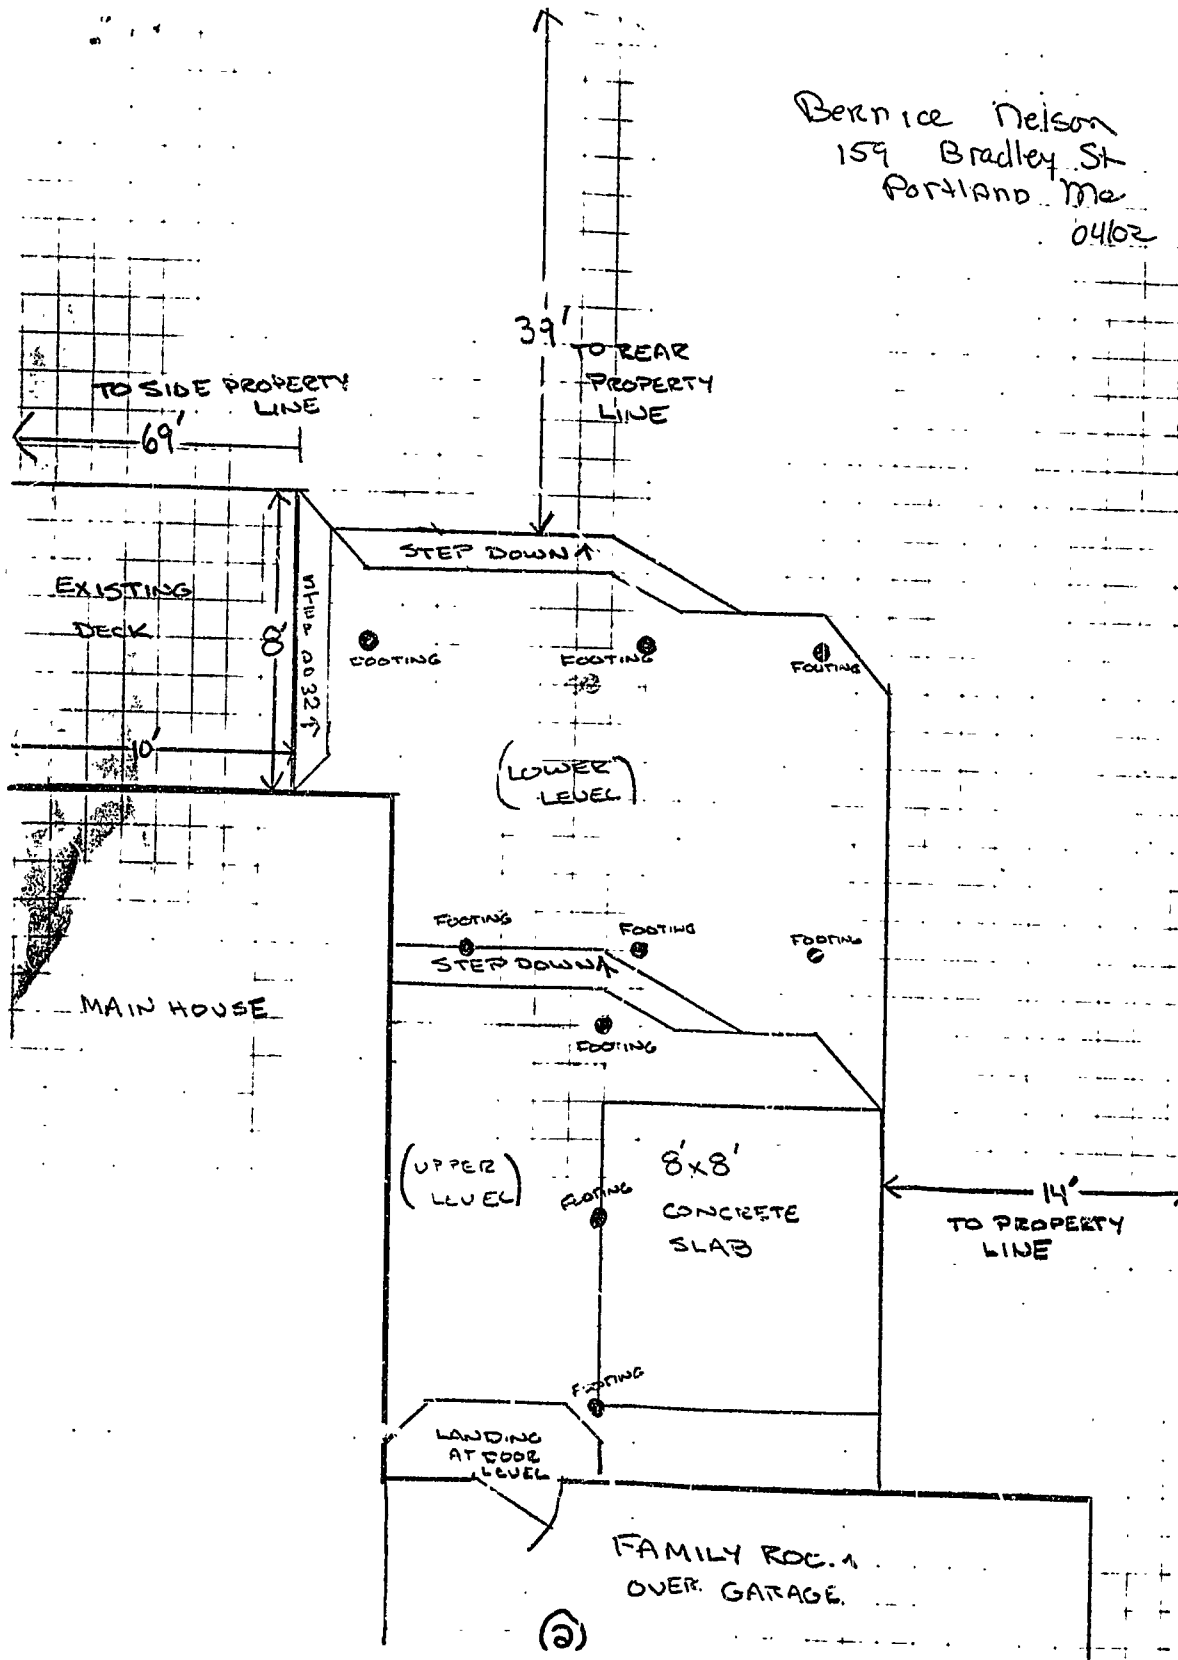 Bernice Nelson
159 Bradley St
Portland Me
04102
39'
TO REAR
PROPERTY
LINE
TO SIDE PROPERTY
LINE
69'
STEP DOWN
EXISTING
DECK
8'
STEP
10'
FOOTING
FOOTING
FOOTING
(LOWER
LEVEL)
FOOTING
FOOTING
FOOTING
STEP DOWN
MAIN HOUSE
FOOTING
(UPPER
LEVEL)
FOOTING
8'x8'
CONCRETE
SLAB
14'
TO PROPERTY
LINE
FOOTING
LANDING
AT DOOR
LEVEL
FAMILY
OVER GARAGE